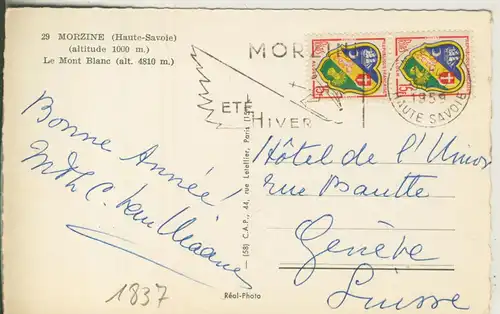 29 MORZINE (Haute-Savoie)
(altitude 1000 m.)
Le Mont Blanc (alt. 4810 m.)
MORZINE
ETE
HIVER
1959
HAUTE SAVOIE
15F
15F
Bonne Année!
Hôtel de l'Union
rue Bautte
Genève
Suisse
(58) C.A.P., 44, rue Letellier, Paris (15e)
1837
Réal-Photo